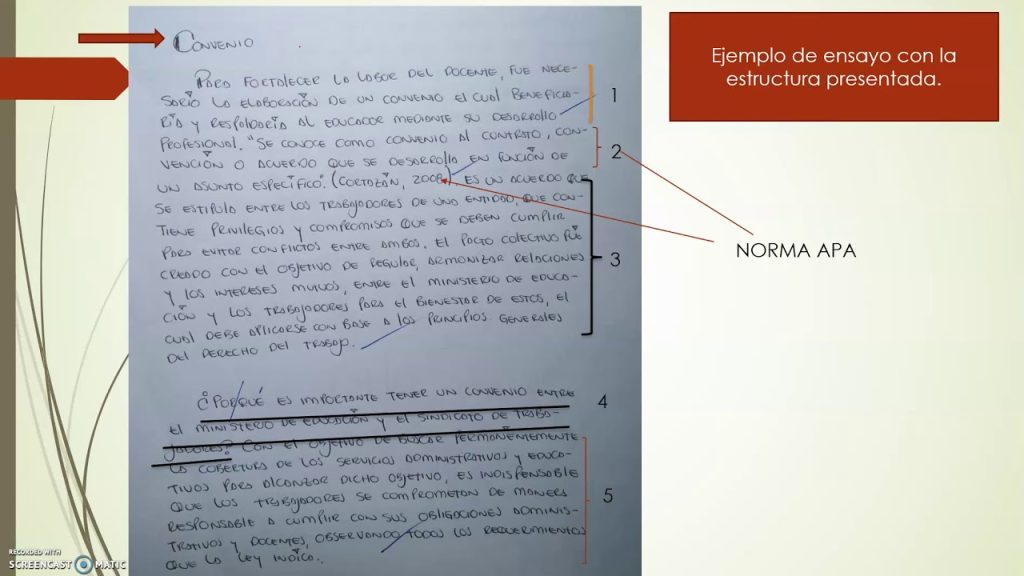 Ejemplo de ensayo con la
estructura presentada.
CONVENIO
PARA FORTALECER LA LABOR DEL DOCENTE, FUE NECE-
SARIO LA ELABORACIÓN DE UN CONVENIO EL CUAL BENEFICIA-
RÍA Y RESPALDARÍA AL EDUCADOR MEDIANTE SU DESARROLLO
PROFESIONAL. "SE CONOCE COMO CONVENIO AL CONTRATO, CON-
VENCIÓN O ACUERDO QUE SE DESARROLLA EN FUNCIÓN DE
UN ASUNTO ESPECÍFICO". (CORTAZÁN, 2008). ES UN ACUERDO QUE
SE ESTIPULA ENTRE LOS TRABAJADORES DE UNA ENTIDAD, QUE CON-
TIENE PRIVILEGIOS Y COMPROMISOS QUE SE DEBEN CUMPLIR
PARA EVITAR CONFLICTOS ENTRE AMBOS. EL PACTO COLECTIVO FUE
CREADO CON EL OBJETIVO DE REGULAR, ARMONIZAR RELACIONES
Y LOS INTERESES MUTUOS, ENTRE EL MINISTERIO DE EDUCA-
CIÓN Y LOS TRABAJADORES PARA EL BIENESTAR DE ESTOS, EL
CUAL DEBE APLICARSE CON BASE A LOS PRINCIPIOS GENERALES
DEL DERECHO DEL TRABAJO.
¿PORQUÉ ES IMPORTANTE TENER UN CONVENIO ENTRE
EL MINISTERIO DE EDUCACIÓN Y EL SINDICATO DE TRABA-
JADORES? CON EL OBJETIVO DE BUSCAR PERMANENTEMENTE
LA COBERTURA DE LOS SERVICIOS ADMINISTRATIVOS Y EDUCA-
TIVOS PARA ALCANZAR DICHO OBJETIVO, ES INDISPENSABLE
QUE LOS TRABAJADORES SE COMPROMETAN DE MANERA
RESPONSABLE A CUMPLIR CON SUS OBLIGACIONES ADMINIS-
TRATIVAS Y DOCENTES, OBSERVANDO TODOS LOS REQUERIMIENTOS
QUE LA LEY INDICA.
1
2
3
4
5
NORMA APA
RECORDED WITH
SCREENCAST MATIC